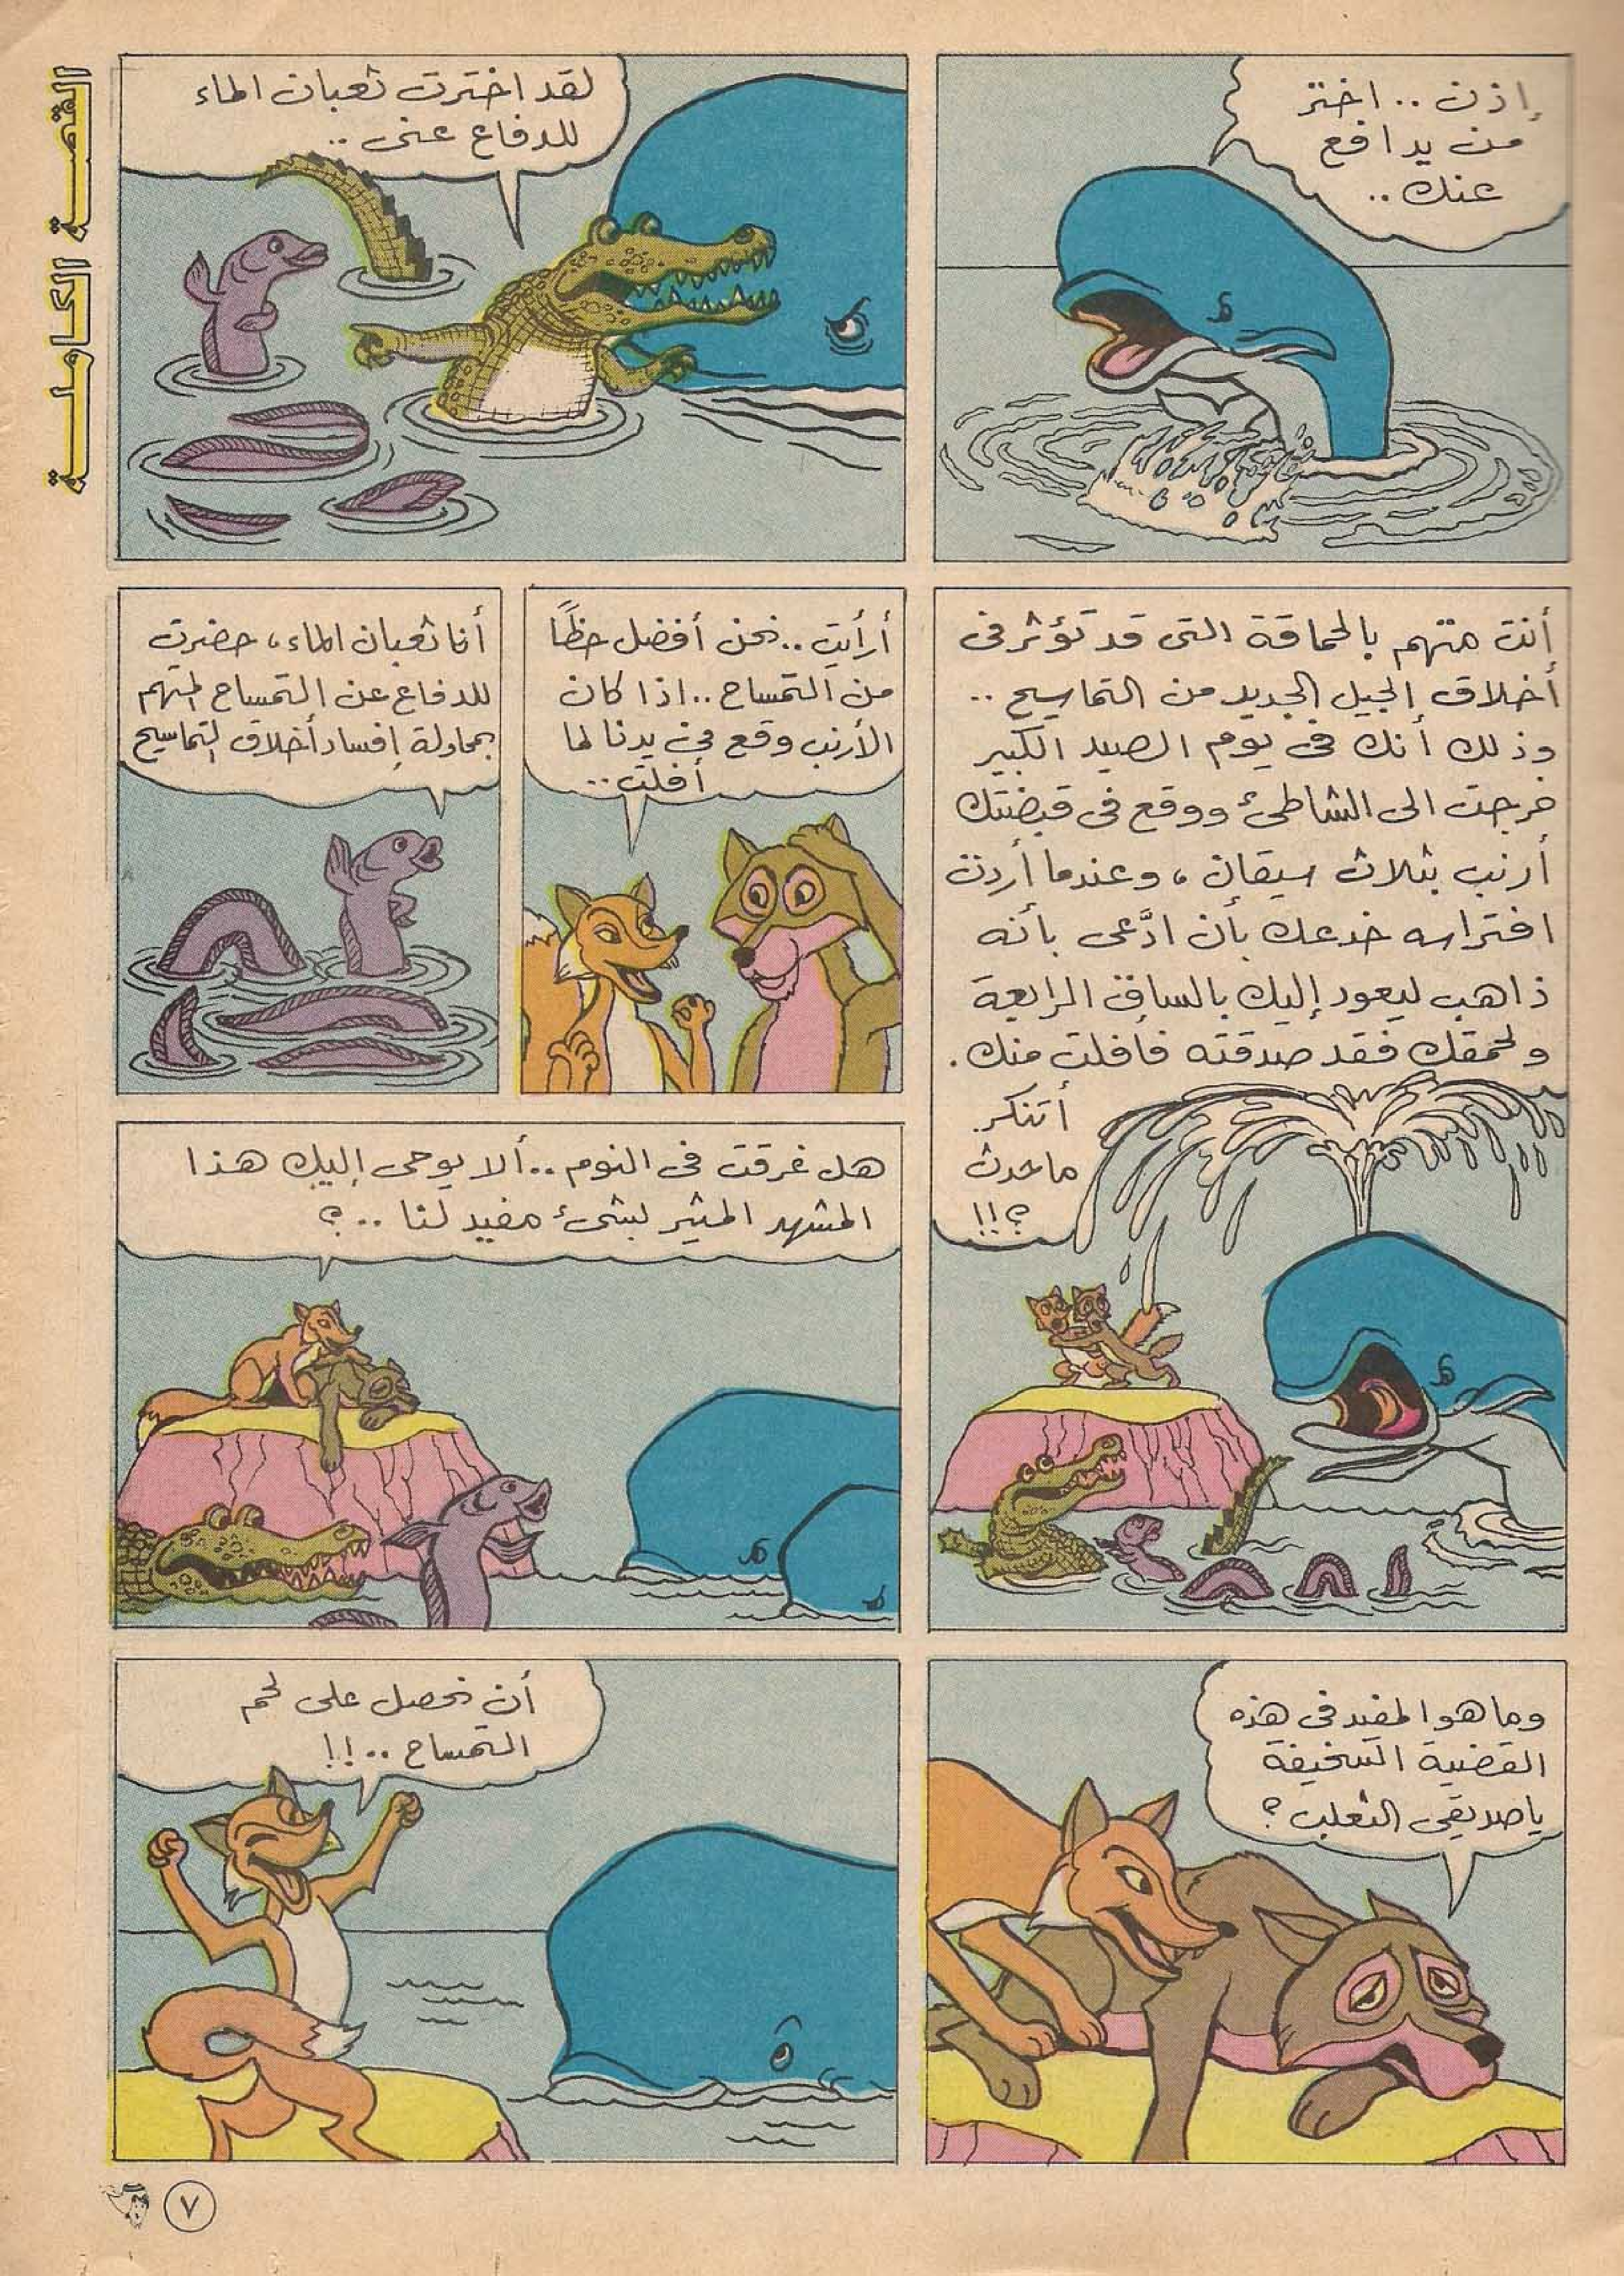 القصة الكاملة
إذن .. اختر
من يدافع
عنك ..
لقد اخترت ثعبان الماء
للدفاع عنى ..
أنت متهم بالحماقة التى قد تؤثر فى
أخلاق الجيل الجديد من التماسيح ..
وذلك أنك فى يوم الصيد الكبير
خرجت الى الشاطئ ووقع فى قبضتك
أرنب بثلاث سيقان ، وعندما أردت
افتراسه خدعك بأن ادَّعى بأنه
ذاهب ليعود إليك بالساق الرابعة
ولحمقك فقد صدقته فافلت منك .
أتنكر
ماحدث
؟!!
أرأيت .. نحن أفضل حظاً
من التمساح .. اذا كان
الأرنب وقع فى يدنا لما
أفلت ..
أنا ثعبان الماء ، حضرت
للدفاع عن التمساح المتهم
بمحاولة إفساد أخلاق التماسيح
هل غرقت فى النوم .. ألا يوحى إليك هذا
المشهد المثير بشئ مفيد لنا .. ؟
وما هو المفيد فى هذه
القضية السخيفة
يا صديقى الثعلب ؟
أن نحصل على لحم
التمساح .. !!
٧